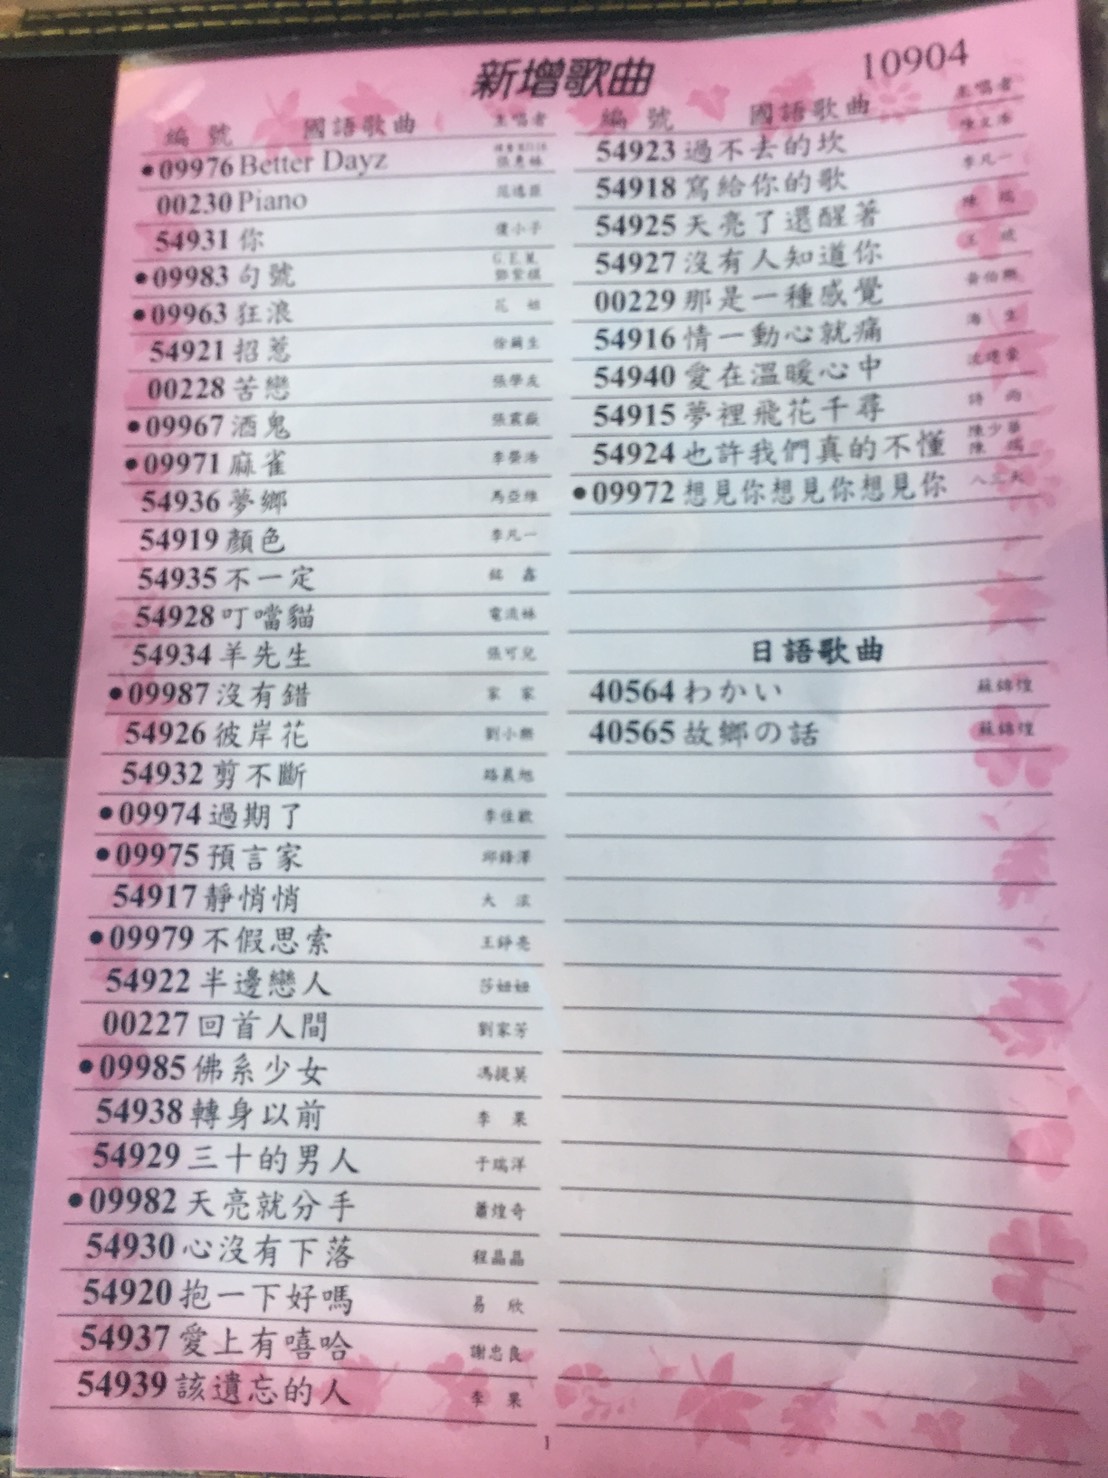 新增歌曲
10904
編號 國語歌曲 主唱者
●09976 Better Dayz 張惠妹
00230 Piano
54931 你 傻小子
●09983 句號 G.E.M. 鄧紫棋
●09963 狂浪 花姐
54921 招惹
00228 苦戀 張學友
●09967 酒鬼 張震嶽
●09971 麻雀 李榮浩
54936 夢鄉 馬亞維
54919 顏色 李凡一
54935 不一定 銘鑫
54928 叮噹貓 電流妹
54934 羊先生 張可兒
●09987 沒有錯 家家
54926 彼岸花 劉小樂
54932 剪不斷 路晨旭
●09974 過期了 李佳歡
●09975 預言家 邱鋒澤
54917 靜悄悄 大泫
●09979 不假思索 王錚亮
54922 半邊戀人 莎妞妞
00227 回首人間 劉家芳
●09985 佛系少女 馮提莫
54938 轉身以前 李果
54929 三十的男人 于瑞洋
●09982 天亮就分手 蕭煌奇
54930 心沒有下落 程晶晶
54920 抱一下好嗎 易欣
54937 愛上有嘻哈 謝忠良
54939 該遺忘的人 李果
編號 國語歌曲 主唱者
54923 過不去的坎
54918 寫給你的歌 李凡一
54925 天亮了還醒著 陳瑞
54927 沒有人知道你
00229 那是一種感覺
54916 情一動心就痛 海生
54940 愛在溫暖心中
54915 夢裡飛花千尋 詩雨
54924 也許我們真的不懂 陳少華 陳瑞
●09972 想見你想見你想見你 八三夭
日語歌曲
40564 わかい 蘇錦煌
40565 故鄉の話 蘇錦煌
1